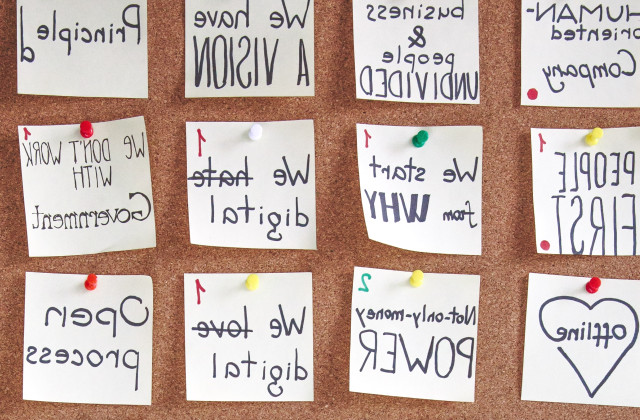 Principled
We have
A VISION
business
&
people
UNDIVIDED
HUMAN-
oriented
Company
1
We DON'T WORK
WITH
Government
1
We hate
digital
1
We start
from WHY
1
PEOPLE
FIRST
Open
process
1
We love
digital
2
Not-only-money
POWER
offline